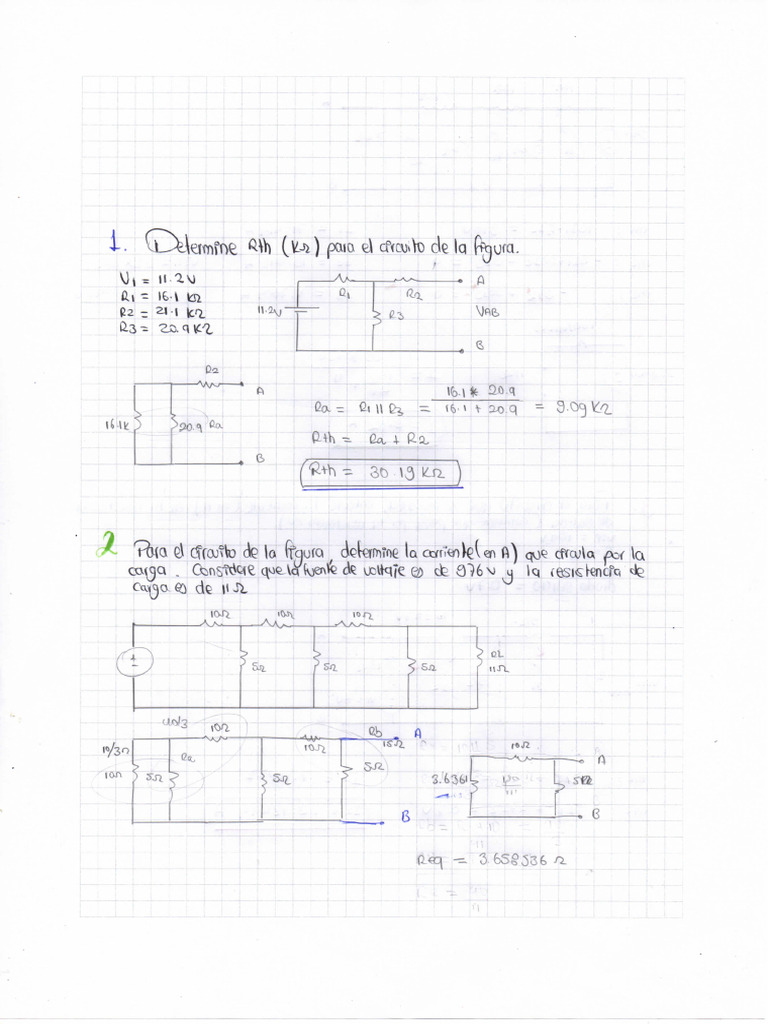 1. Determine Rth (KΩ) para el circuito de la figura.
V1 = 11.2V
R1 = 16.1 KΩ
R2 = 21.1 KΩ
R3 = 20.9 KΩ
11.2V
R1
R2
R3
A
VAB
B
R2
A
16.1K
20.9
Ra
B
Ra = R1 || R3 = 16.1 * 20.9 / 16.1 + 20.9 = 9.09 KΩ
Rth = Ra + R2
Rth = 30.19 KΩ
2 Para el circuito de la figura, determine la corriente (en A) que circula por la
carga. Considere que la fuente de voltaje es de 976v y la resistencia de
carga es de 11Ω
10Ω 10Ω 10Ω
+
-
5Ω 5Ω 5Ω
RL
11Ω
40/3
10Ω
10/3Ω
10Ω
5Ω
Ra
5Ω
10Ω
Rb
15Ω
5Ω
A
B
10Ω
3.6361
A
B
Req = 3.658536 Ω